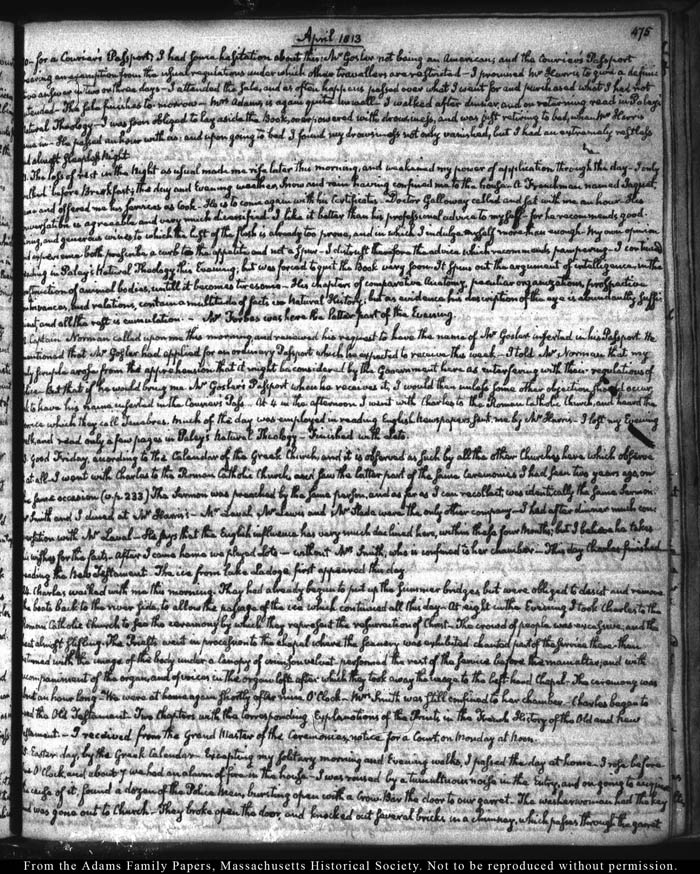 April 1813
475
for a Courier's Passport; I had some hesitation about this; Mr Gosler not being an American; and the Courier's Passport
an exemption from the usual regulations under which other travellers are restricted – I promised Mr Harris to give a definite
answer in two or three days – I attended the sale, and as often happens passed over what I went for and purchased what I had not
intended. The sale finishes to-morrow – Mrs Adams, is again quite unwell. I walked after dinner, and on returning read in Paley's
Natural Theology – I was soon obliged to lay aside the Book, overpowered with drowsiness, and was just retiring to bed, when Mr Harris
came in – He passed an hour with us: and upon going to bed I found my drowsiness not only vanished, but I had an extremely restless
and almost sleepless Night.
The loss of rest in the Night as usual made me rise later this morning, and weakened my power of application through the day – I only
walked before Breakfast; the day and Evening weather, snow and rain having confined me to the house. A Frenchman named
came and offered me his services as Cook. He is to come again with his Certificates. Doctor Galloway called and sat with me an hour. His
conversation is agreeable and very much diversified. I like it better than his professional advice to myself – for he recommends good
living, and generous wines to which the lust of the flesh is already too prone, and in which I indulge myself more than enough. My own opinion
and experience both prescribe a curb to the appetite and not a spur – I distrust therefore the advice which recommends pampering – I continued
reading in Paley's Natural Theology this Evening; but was forced to quit the Book very soon. It spins out the argument of intelligence, in the
construction of animal bodies, untill it becomes tiresome – His chapters of comparative Anatomy, peculiar organizations, prospective
contrivances, and relations, contain a multitude of facts in Natural History; but as evidence his description of the eye is abundantly suffi-
cient, and all the rest is cumulation – Mr Forbes was here the latter part of the Evening.
Captain Norman called upon me this morning, and renewed his request to have the name of Mr Gosler inserted in his Passport. He
mentioned that Mr Gosler had applied for an ordinary Passport which he expected to receive this week – I told Mr Norman that my
only scruple arose from the apprehension that it might be considered by the Government here as interfering with their regulations of
But that if he would bring me Mr Gosler's Passport when he receives it, I would then unless some other objection should occur,
to have his name inserted in the Courier's Pass. At 4 in the afternoon I went with Charles to the Roman Catholic Church, and heard the
service which they call Tenebres. Much of the day was employed in reading English Newspapers sent me by Mr Harris – I lost my Evening
walk, and read only a few pages in Paley's Natural Theology – Finished with Loto.
Good Friday, according to the Calendar of the Greek Church, and it is observed as such by all the other Churches here which observe
it at all – I went with Charles to the Roman Catholic Church, and saw the latter part of the same Ceremonies I had seen two years ago, on
the same occasion (v. p. 233) The Sermon was preached by the same person, and as far as I can recollect, was identically the same Sermon.
Mr Smith and I dined at Mr Harris's – Mr Laval, Mr Lewis and Mr Slade were the only other company – I had after dinner much con-
versation with Mr Laval – He says that the English influence has very much declined here, within these four Months; but I believe he takes
his wishes for the facts. After I came home we played Loto – without Mrs Smith, who is confined to her chamber – This day Charles finished
reading the New Testament – The ice from Lake Ladoga first appeared this day.
Charles walked with me this morning. They had already begun to put up the summer bridges, but were obliged to desist and remove
the boats back to the river side, to allow the passage of the ice which continued all this day – At eight in the Evening I took Charles to the
Roman Catholic Church to see the ceremony by which they represent the resurrection of Christ. The crowd of people was excessive, and the
heat almost stifling. The Priests went in procession to the chapel where the scenery was exhibited chanted part of the service there – then
returned with the image of the body under a Canopy of crimson velvet – performed the rest of the service before the main altar, and with
accompaniment of the organ, and of voices in the organ loft: after which they took away the image to the left hand Chapel. The ceremony was
about an hour long – We were at home again shortly after nine O'Clock – Mrs Smith was still confined to her chamber – Charles began to
read the Old Testament. Two Chapters with the corresponding Explanations of the Prints in the French History of the Old and New
Testament – I received from the Grand Master of the Ceremonies, notice for a Court, on Monday at Noon.
Easter day, by the Greek Calendar – Excepting my solitary morning and Evening walks, I passed the day at home – I rose before
O'Clock, and about 7 we had an alarm of fire in the house – I was roused by a tumultuous noise in the Entry, and on going to enquire
the cause of it, found a dozen of the Police Men, bursting open with a Crow-Bar the door to our garret. The washerwoman had the key
and was gone out to Church. They broke open the door and knocked out several bricks in a chimney, which passes through the garret
From the Adams Family Papers, Massachusetts Historical Society. Not to be reproduced without permission.